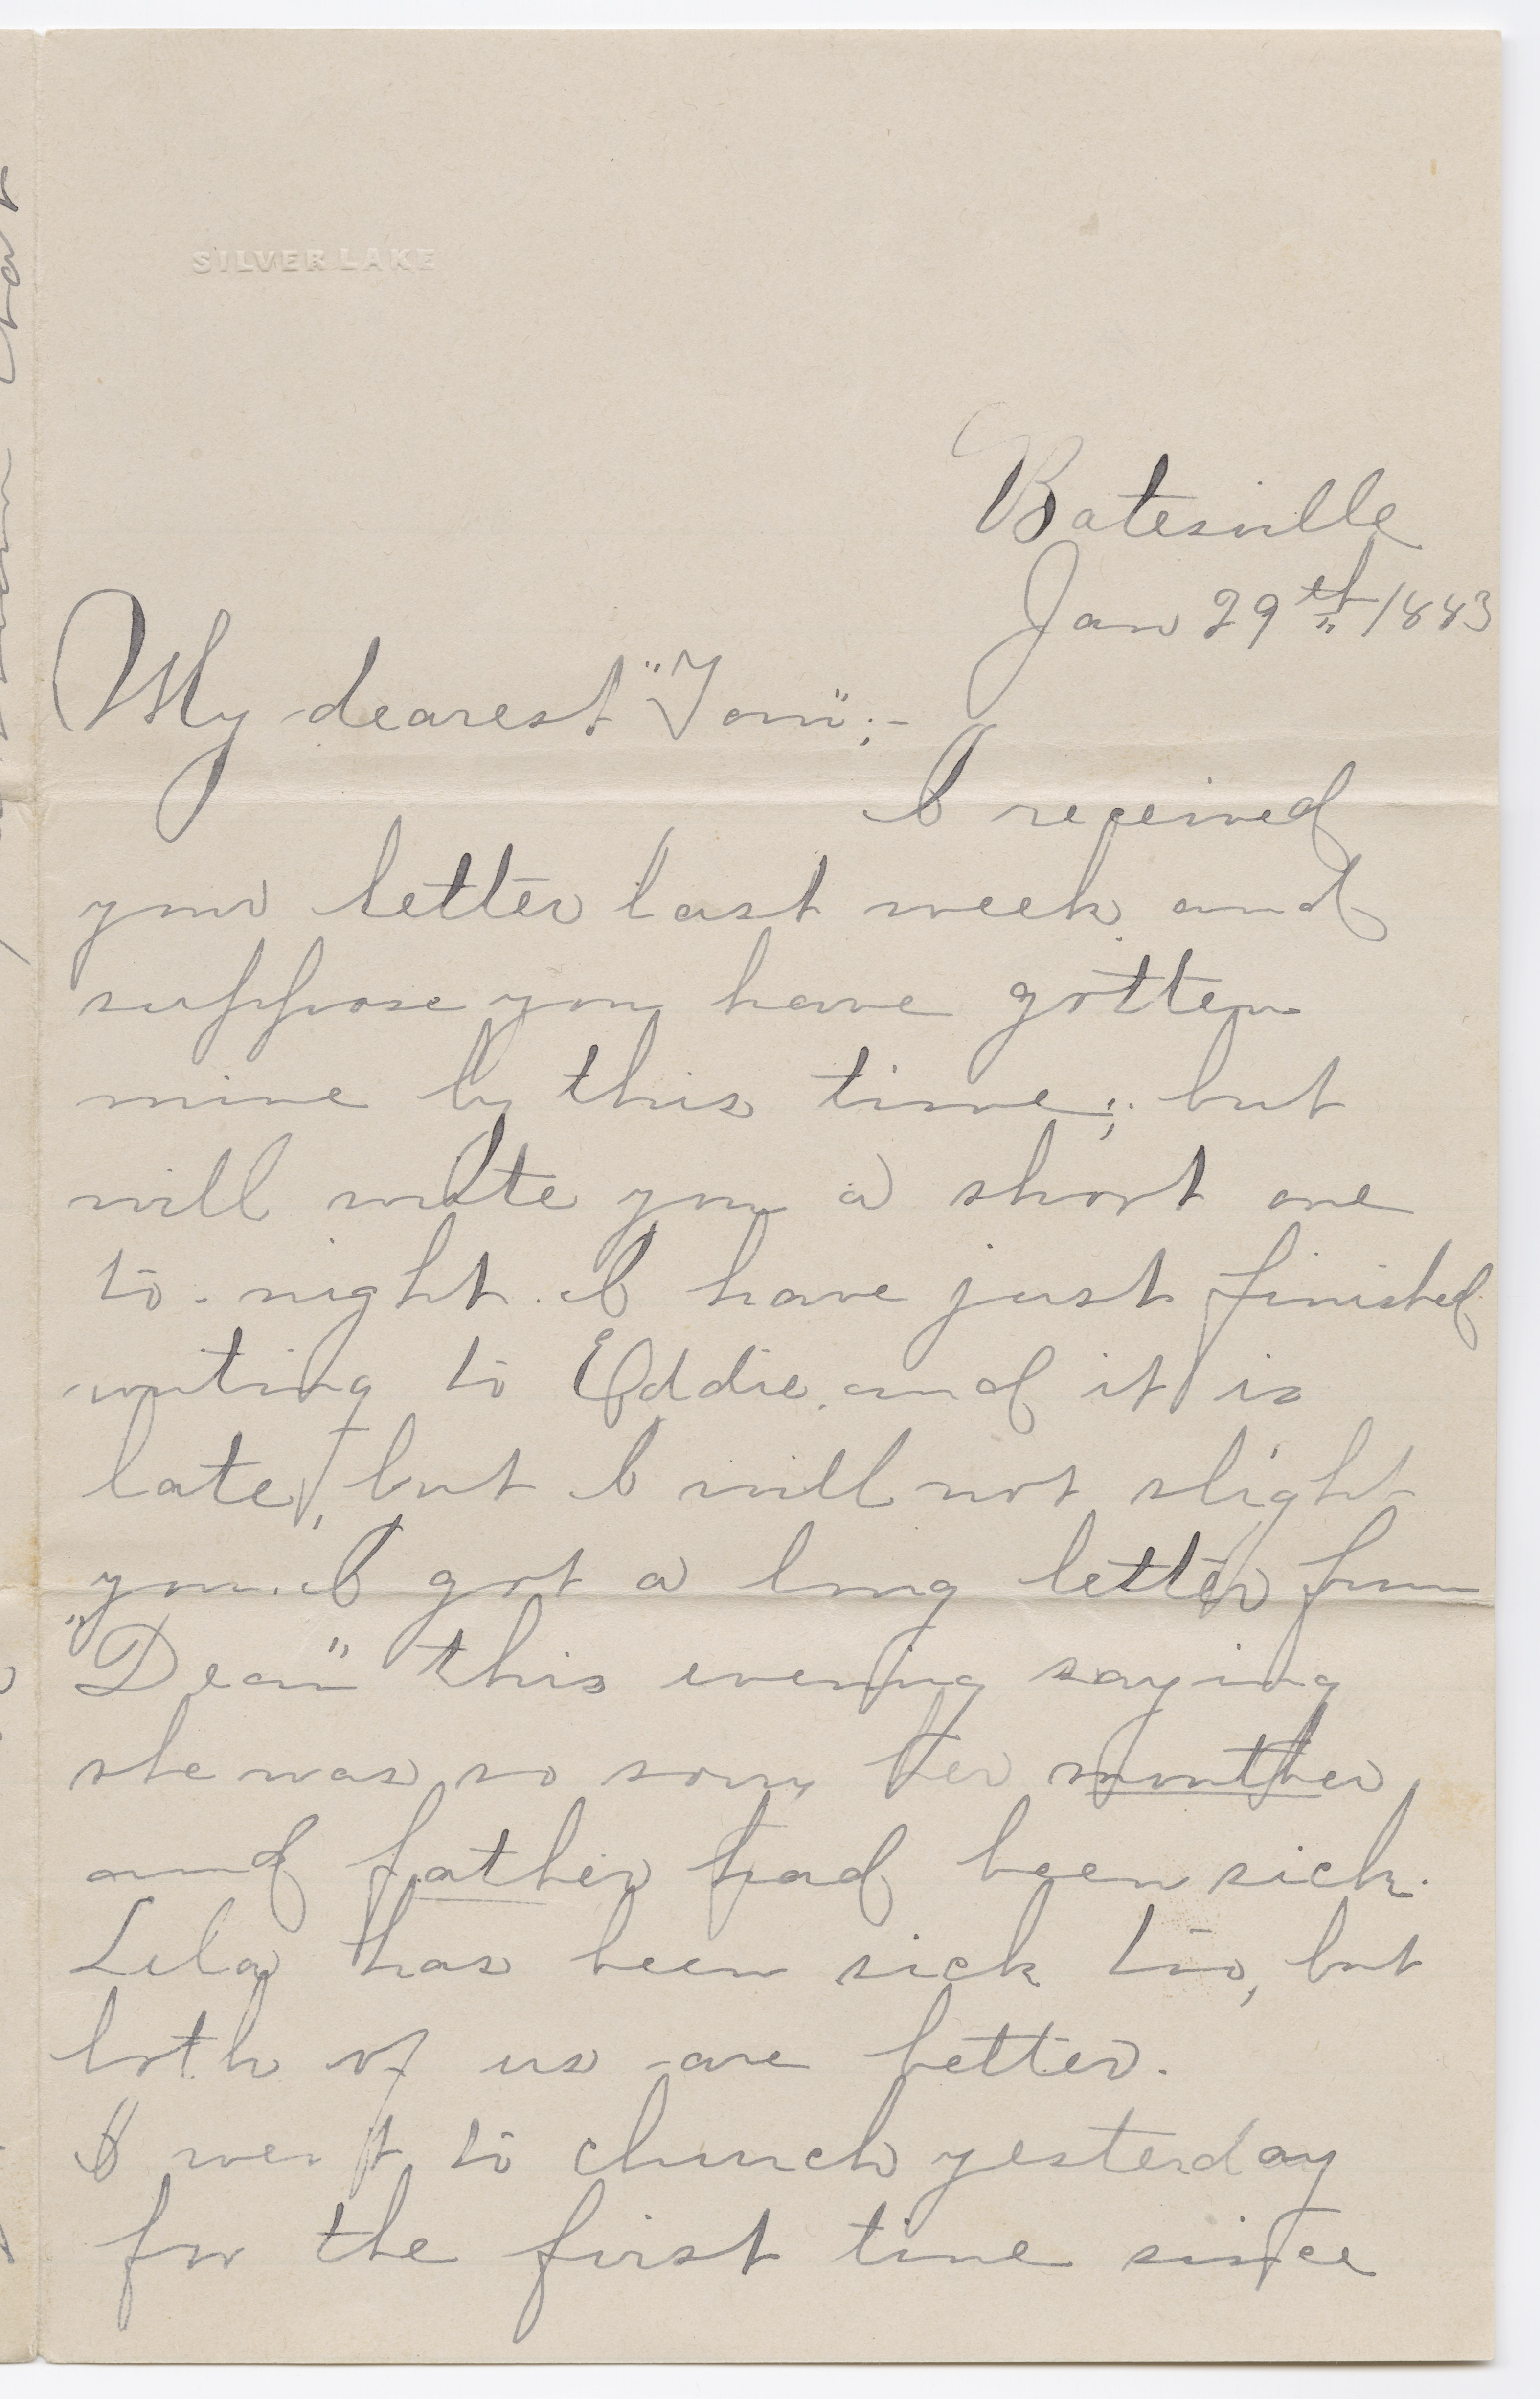 SILVER LAKE
Batesville
Jan 29th 1883
My dearest "Tom";-
I received
your letter last week and
suppose you have gotten
mine by this time; but
will write you a short one
to-night. I have just finished
writing to Eddie and it is
late, but I will not slight
you. I got a long letter from
"Dean" this evening saying
she was so sorry her mother
and father had been sick.
Lula has been sick too, but
both of us are better.
I went to church yesterday
for the first time since